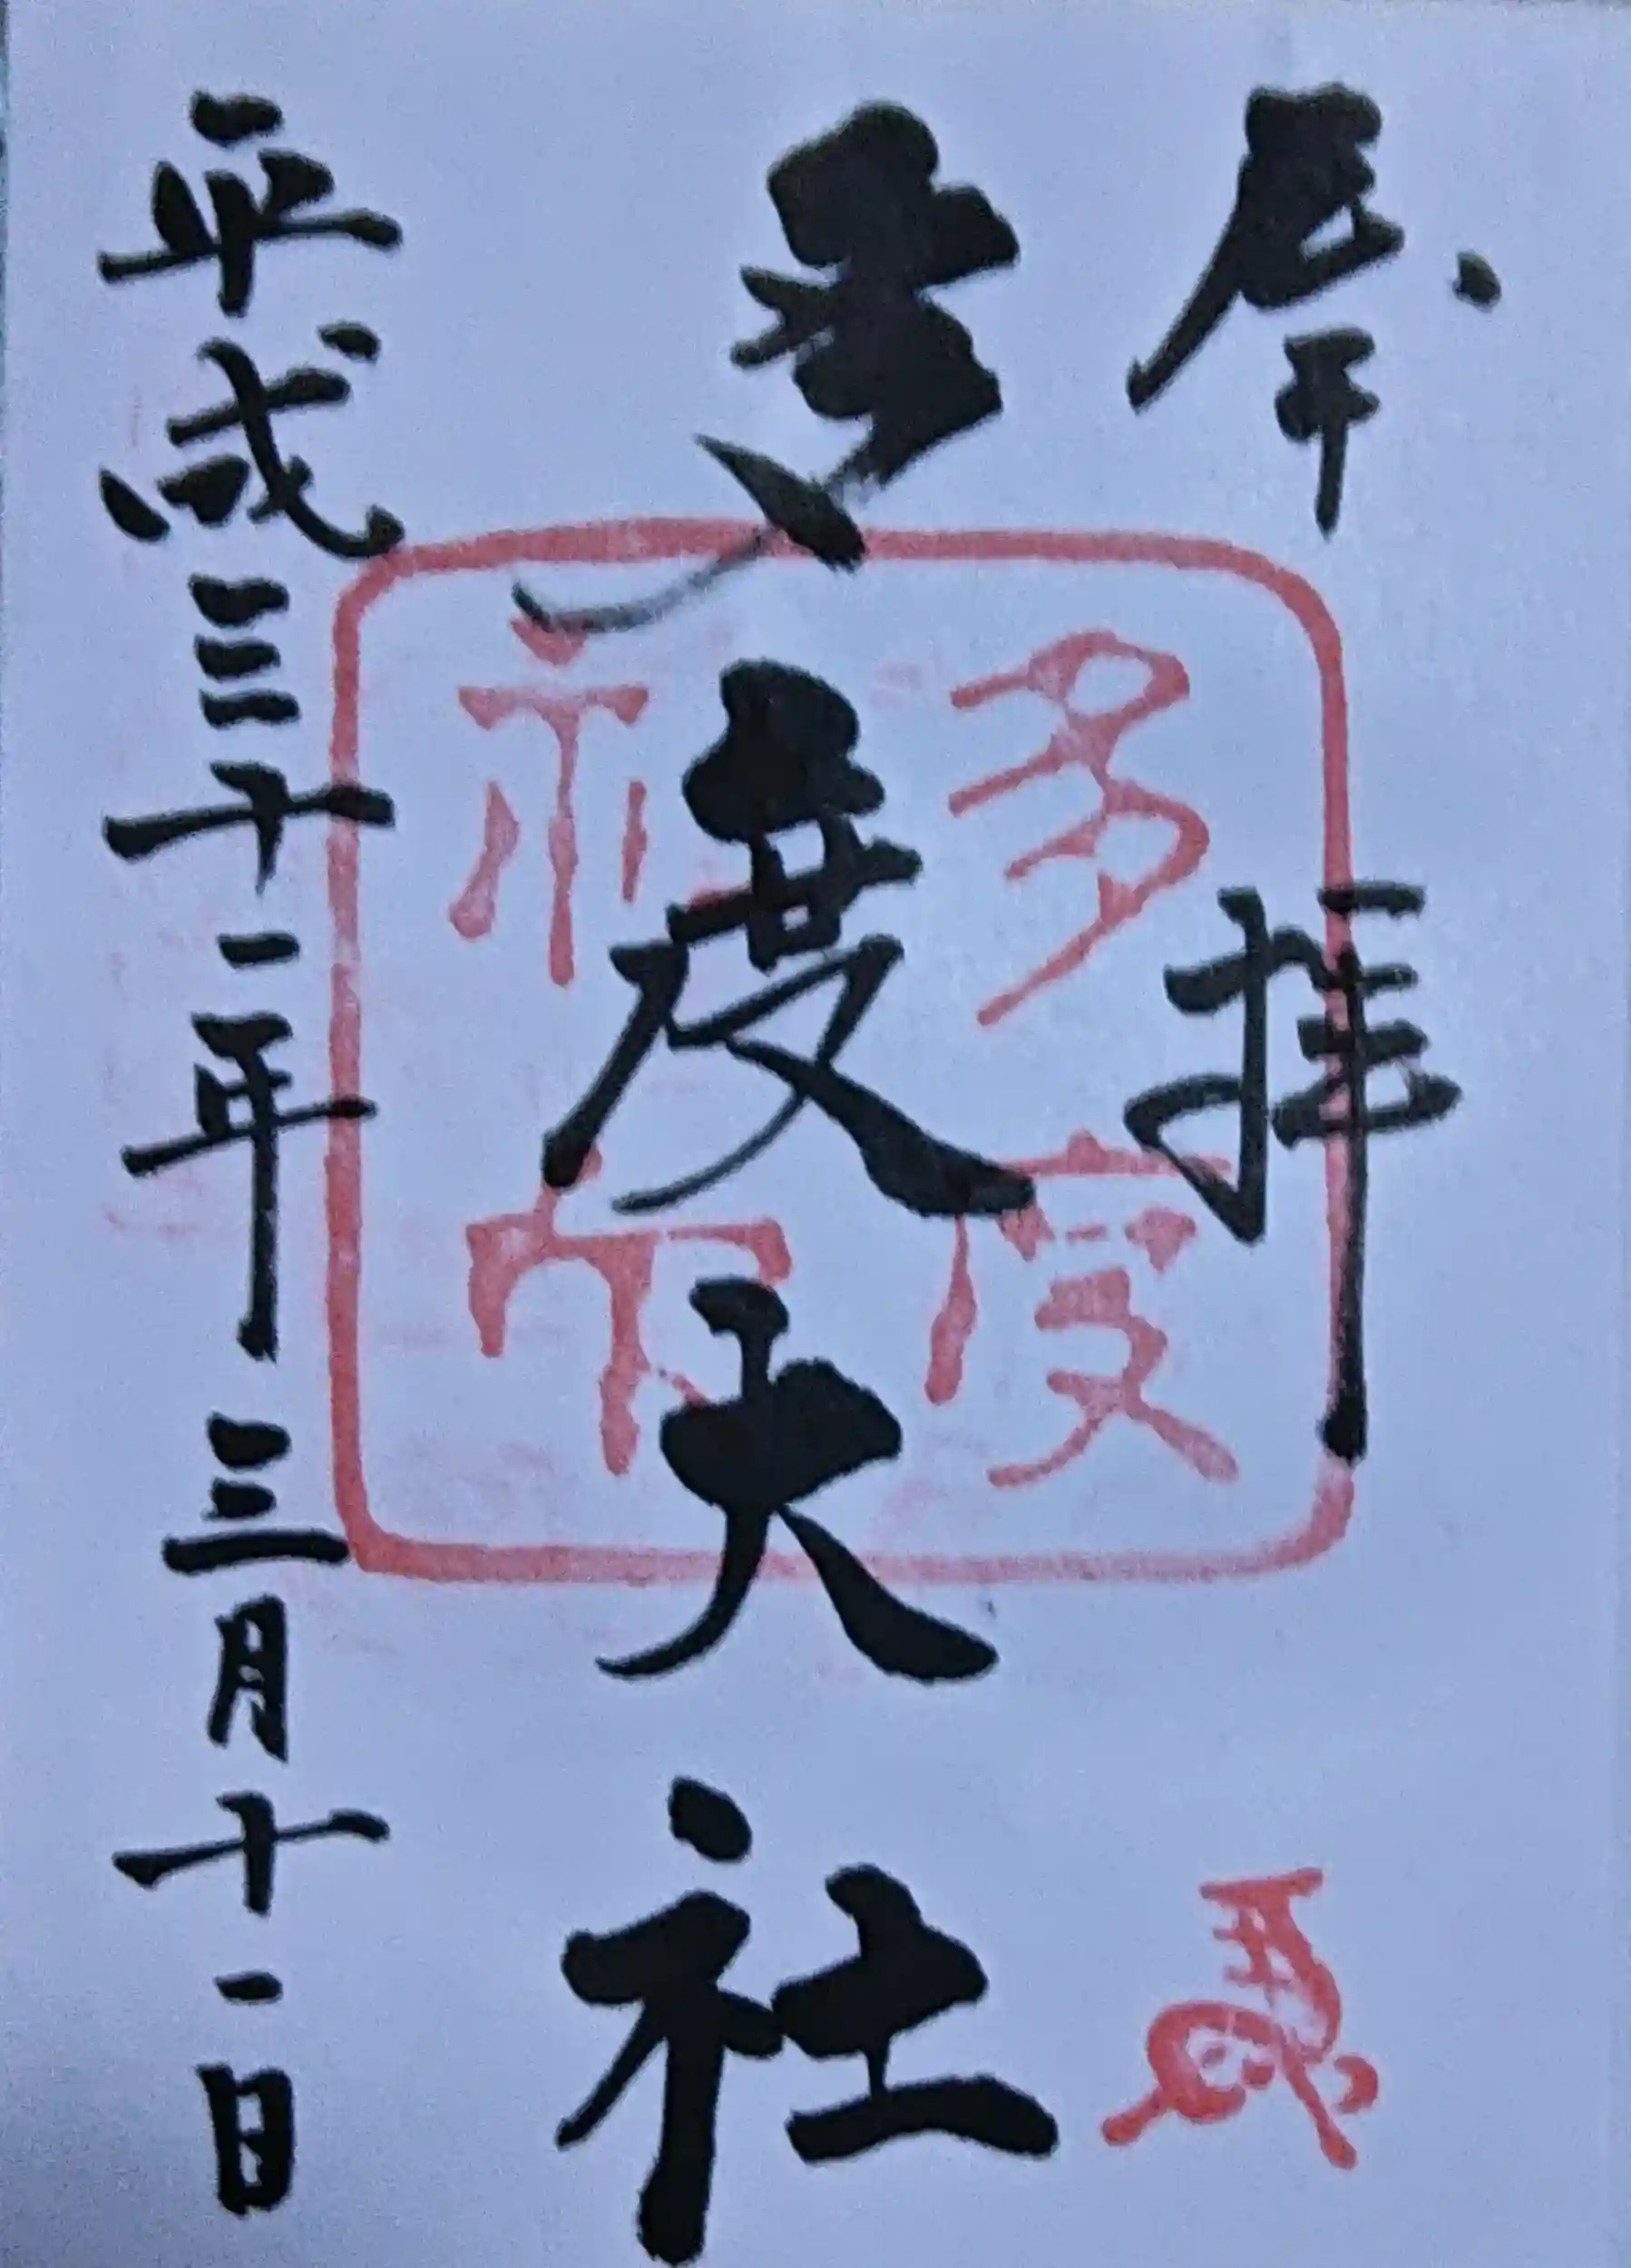 奉拝
多度大社
平成三十一年三月十一日
多度
神社